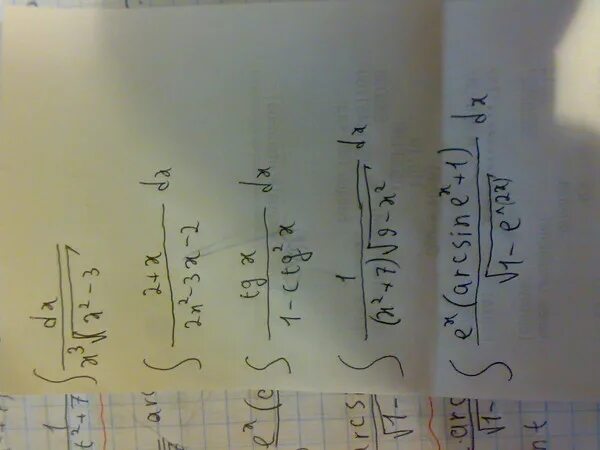 ∫ dx / (x³√(x²-3))
∫ (2+x) / (2x²-3x-2) dx
∫ tg x / (1-ctg²x) dx
∫ 1 / ((x²+7)√(9-x²)) dx
∫ eˣ(arcsin eˣ+1) / √(1-e^(2x)) dx